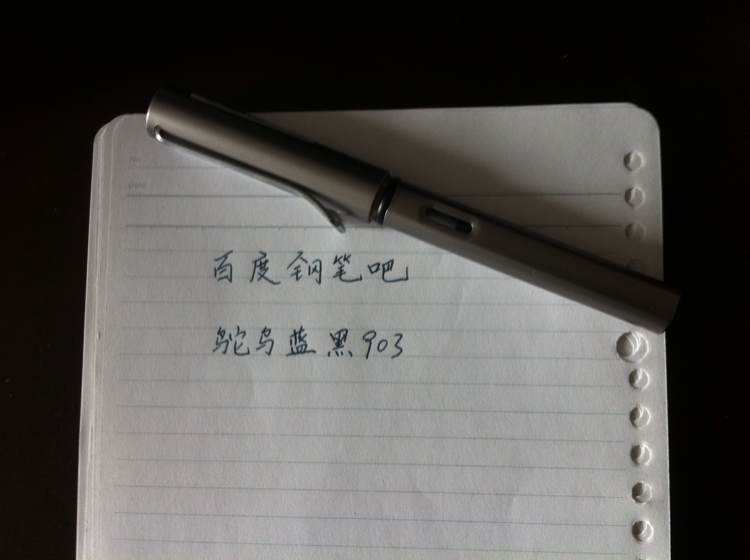 No.
Date
百度钢笔吧
鸵鸟蓝黑903